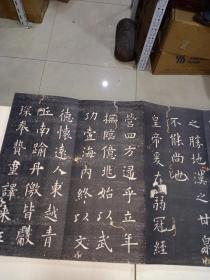 之勝地漢之甘泉
不能尚也
皇帝爰在弱冠經
營四方逮乎立年
撫臨億兆始以武
功壹海內終以文
德懷遠人東越青
丘南踰丹徼皆獻
琛奉贄重譯來王